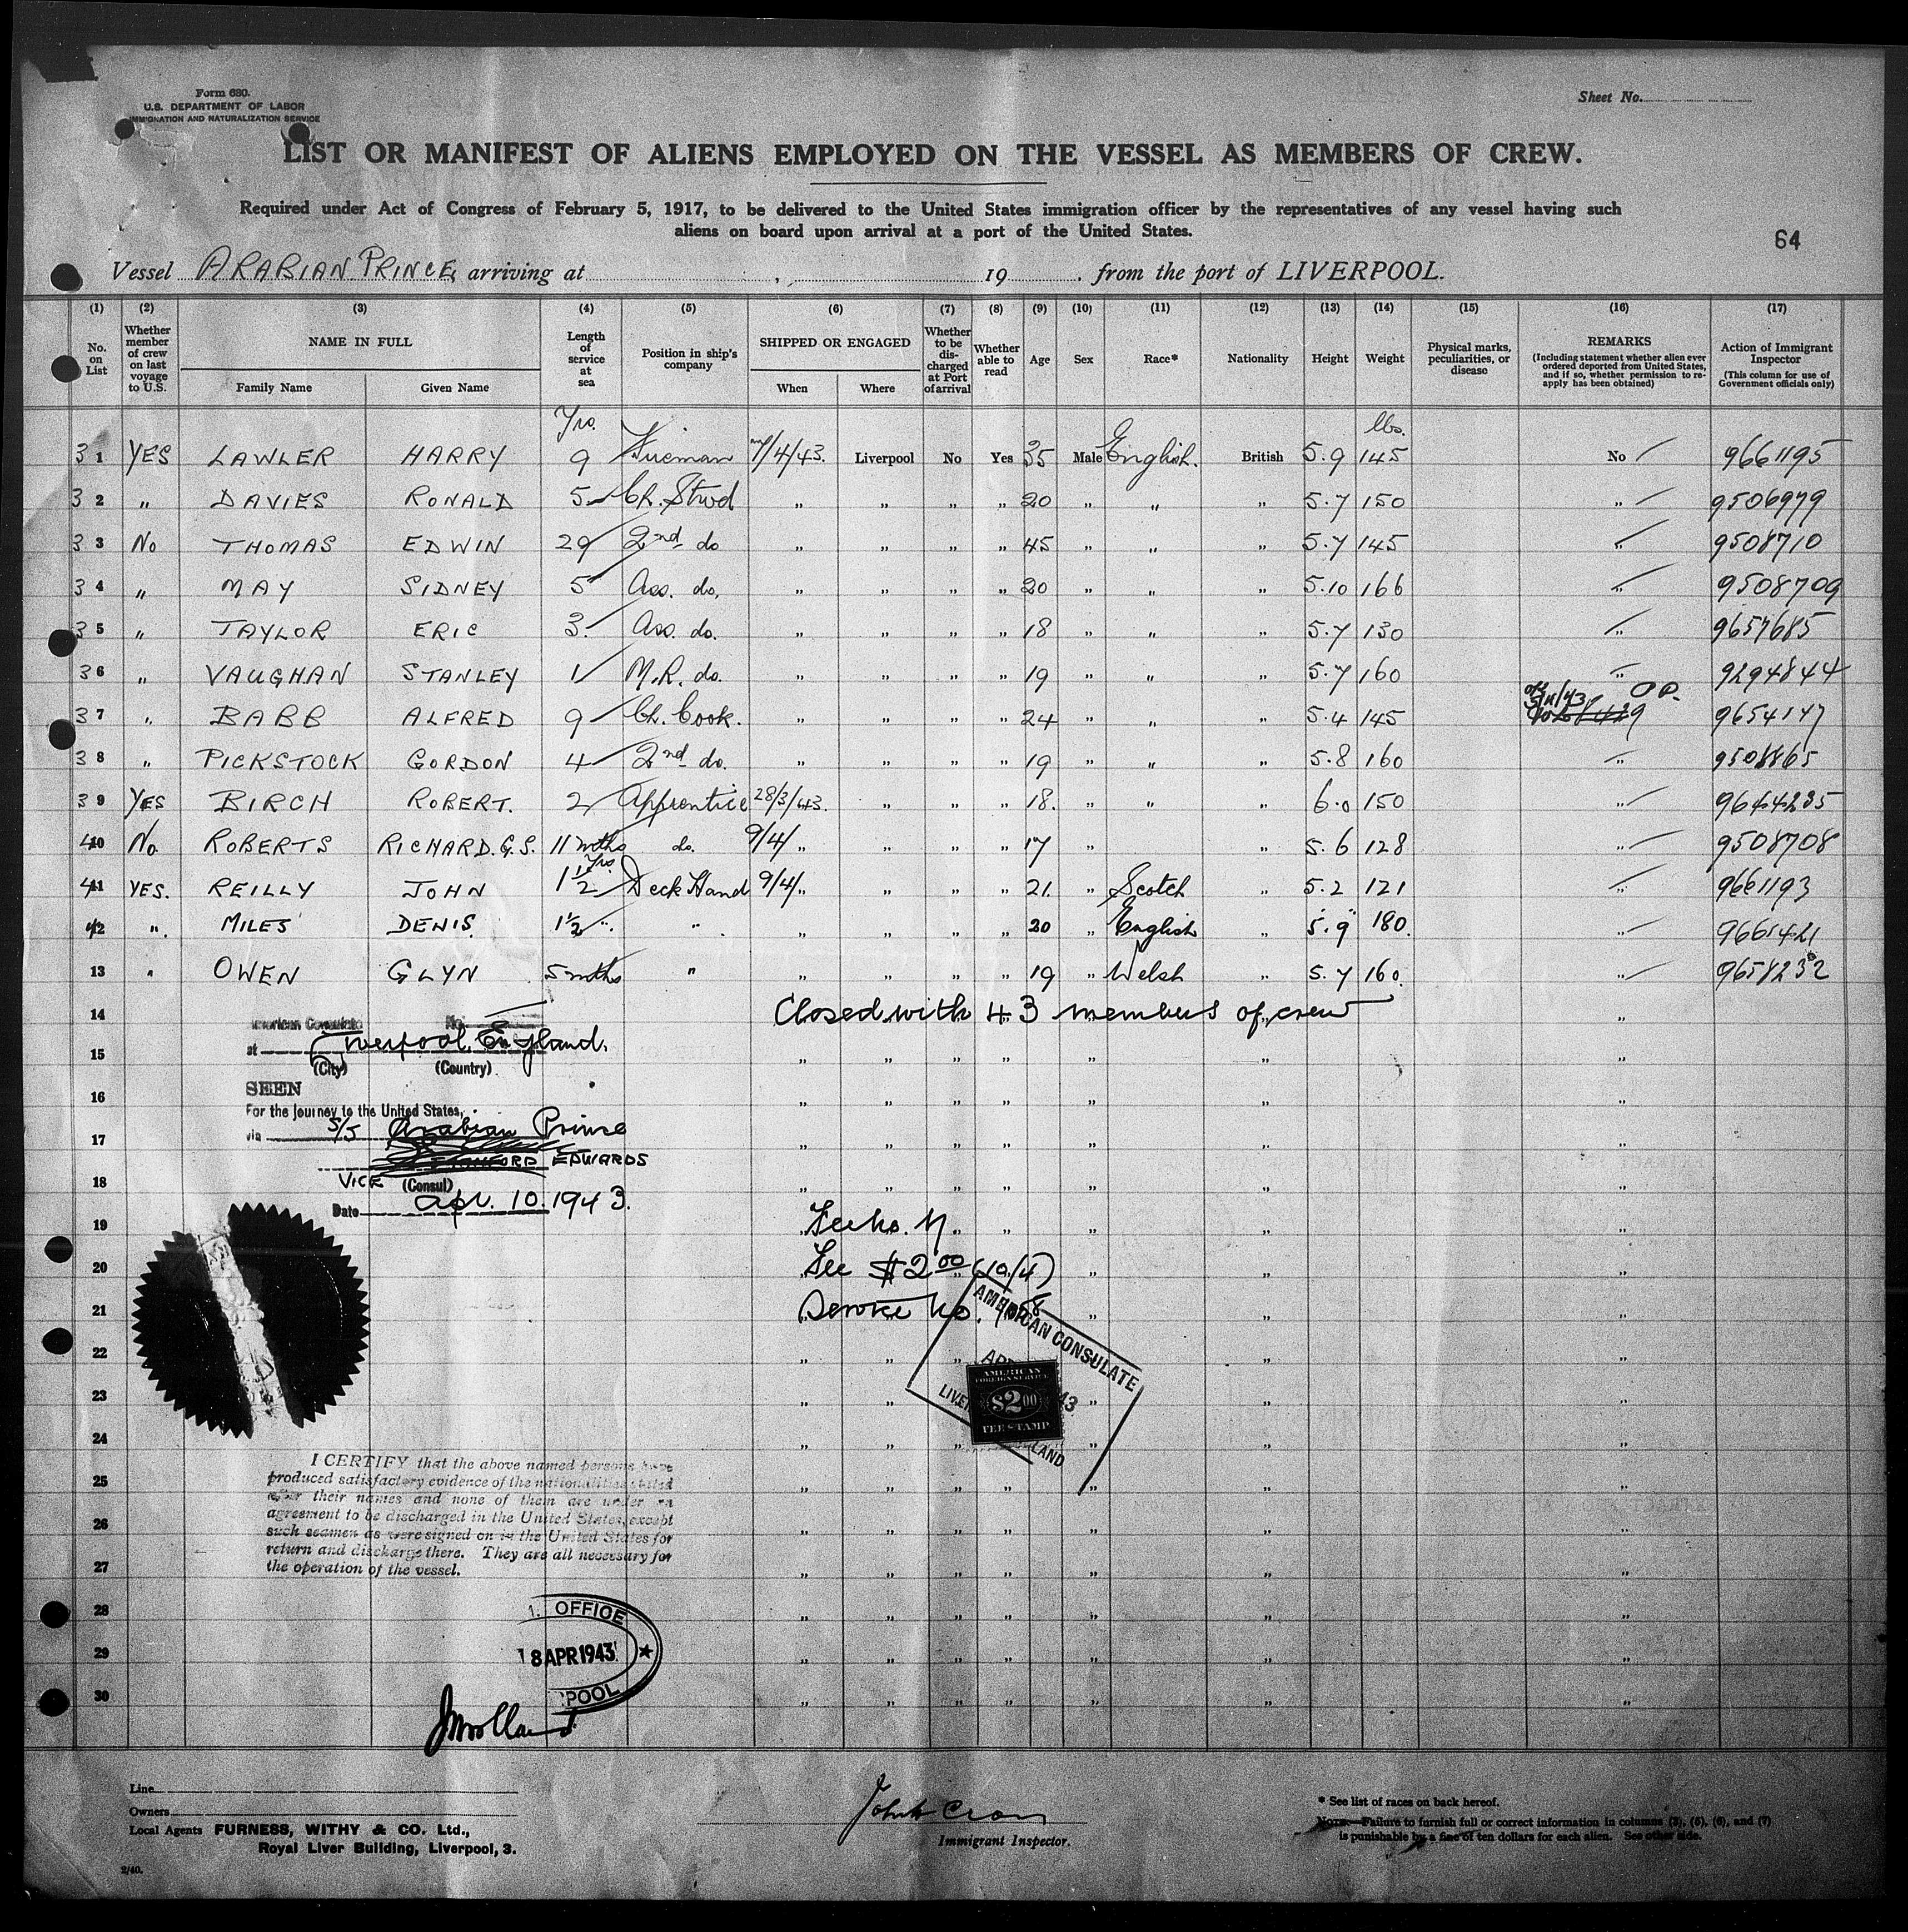 Form 680.
U.S. DEPARTMENT OF LABOR
IMMIGRATION AND NATURALIZATION SERVICE
Sheet No.
LIST OR MANIFEST OF ALIENS EMPLOYED ON THE VESSEL AS MEMBERS OF CREW.
Required under Act of Congress of February 5, 1917, to be delivered to the United States immigration officer by the representatives of any vessel having such
aliens on board upon arrival at a port of the United States.
64
Vessel ARABIAN PRINCE, arriving at , 19 , from the port of LIVERPOOL.
(1) (2) (3) (4) (5) (6) (7) (8) (9) (10) (11) (12) (13) (14) (15) (16) (17)
No. on List
Whether member of crew on last voyage to U.S.
NAME IN FULL
Family Name Given Name
Length of service at sea
Position in ship's company
SHIPPED OR ENGAGED
When Where
Whether to be discharged at Port of arrival
Whether able to read
Age
Sex
Race*
Nationality
Height
Weight
Physical marks, peculiarities, or disease
REMARKS
(Including statement whether alien ever ordered deported from United States, and if so, whether permission to re-apply has been obtained)
Action of Immigrant Inspector
(This column for use of Government officials only)
Yrs. lbs.
31 YES LAWLER HARRY 9 Fireman 7/4/43. Liverpool No Yes 35 Male English. British 5.9 145 No 9661195
32 " DAVIES RONALD 5 Ch. Stwd " " " " 20 " " " 5.7 150 " 9506979
33 No THOMAS EDWIN 29 2nd do " " " " 45 " " " 5.7 145 " 9508710
34 " MAY SIDNEY 5 Ass. do. " " " " 20 " " " 5.10 166 " 9508709
35 " TAYLOR ERIC 3. Ass. do. " " " " 18 " " " 5.7 130 " 9657685
36 " VAUGHAN STANLEY 1 M.R. do. " " " " 19 " " " 5.7 160 " 9294844
37 " BABB ALFRED 9 Ch. Cook. " " " " 24 " " " 5.4 145 9654147
38 " PICKSTOCK GORDON 4 2nd do. " " " " 19 " " " 5.8 160 " 9508865
39 YES BIRCH ROBERT. 2 Apprentice 28/3/43. " " " 18. " " " 6.0 150 " 9644235
40 No ROBERTS RICHARD. G.S. 11 mths do. 9/4/ " " " " 17 " " 5.6 128 " 9508708
41 YES. REILLY JOHN 1½ Yrs. Deck Hand 9/4/ " " " " 21. " Scotch " 5.2 121 " 9661193
42 " MILES DENIS. 1½ " " " " " " 20 " English " 5.9 180. " 9665421
13 " OWEN GLYN 5 mths " " " " " 19 " Welsh " 5.7 160. " 9658232
14 Closed with 43 members of crew
15
16
17
18
19
20
21
22
23
24
25
26
27
28
29
30
American Consulate No.
at Liverpool, England.
(City) (Country)
SEEN
For the journey to the United States,
via S/S Arabian Prince
EDWARDS
VICE (Consul)
Date Apr. 10. 1943.
Fee $2.00 (10/4)
Service No.
AMERICAN CONSULATE
AMERICAN
FOREIGN SERVICE
$2.00
FEE STAMP
I CERTIFY that the above named persons have
produced satisfactory evidence of the nationalities stated
after their names and none of them are under an
agreement to be discharged in the United States, except
such seamen as were signed on in the United States for
return and discharge there. They are all necessary for
the operation of the vessel.
OFFICE
8 APR 1943
POOL
Line
Owners
Local Agents FURNESS, WITHY & CO. Ltd.,
Royal Liver Building, Liverpool, 3.
2/40.
John
Immigrant Inspector.
* See list of races on back hereof.
NOTE.—Failure to furnish full or correct information in columns (3), (5), (6), and (7)
is punishable by a fine of ten dollars for each alien. See other side.